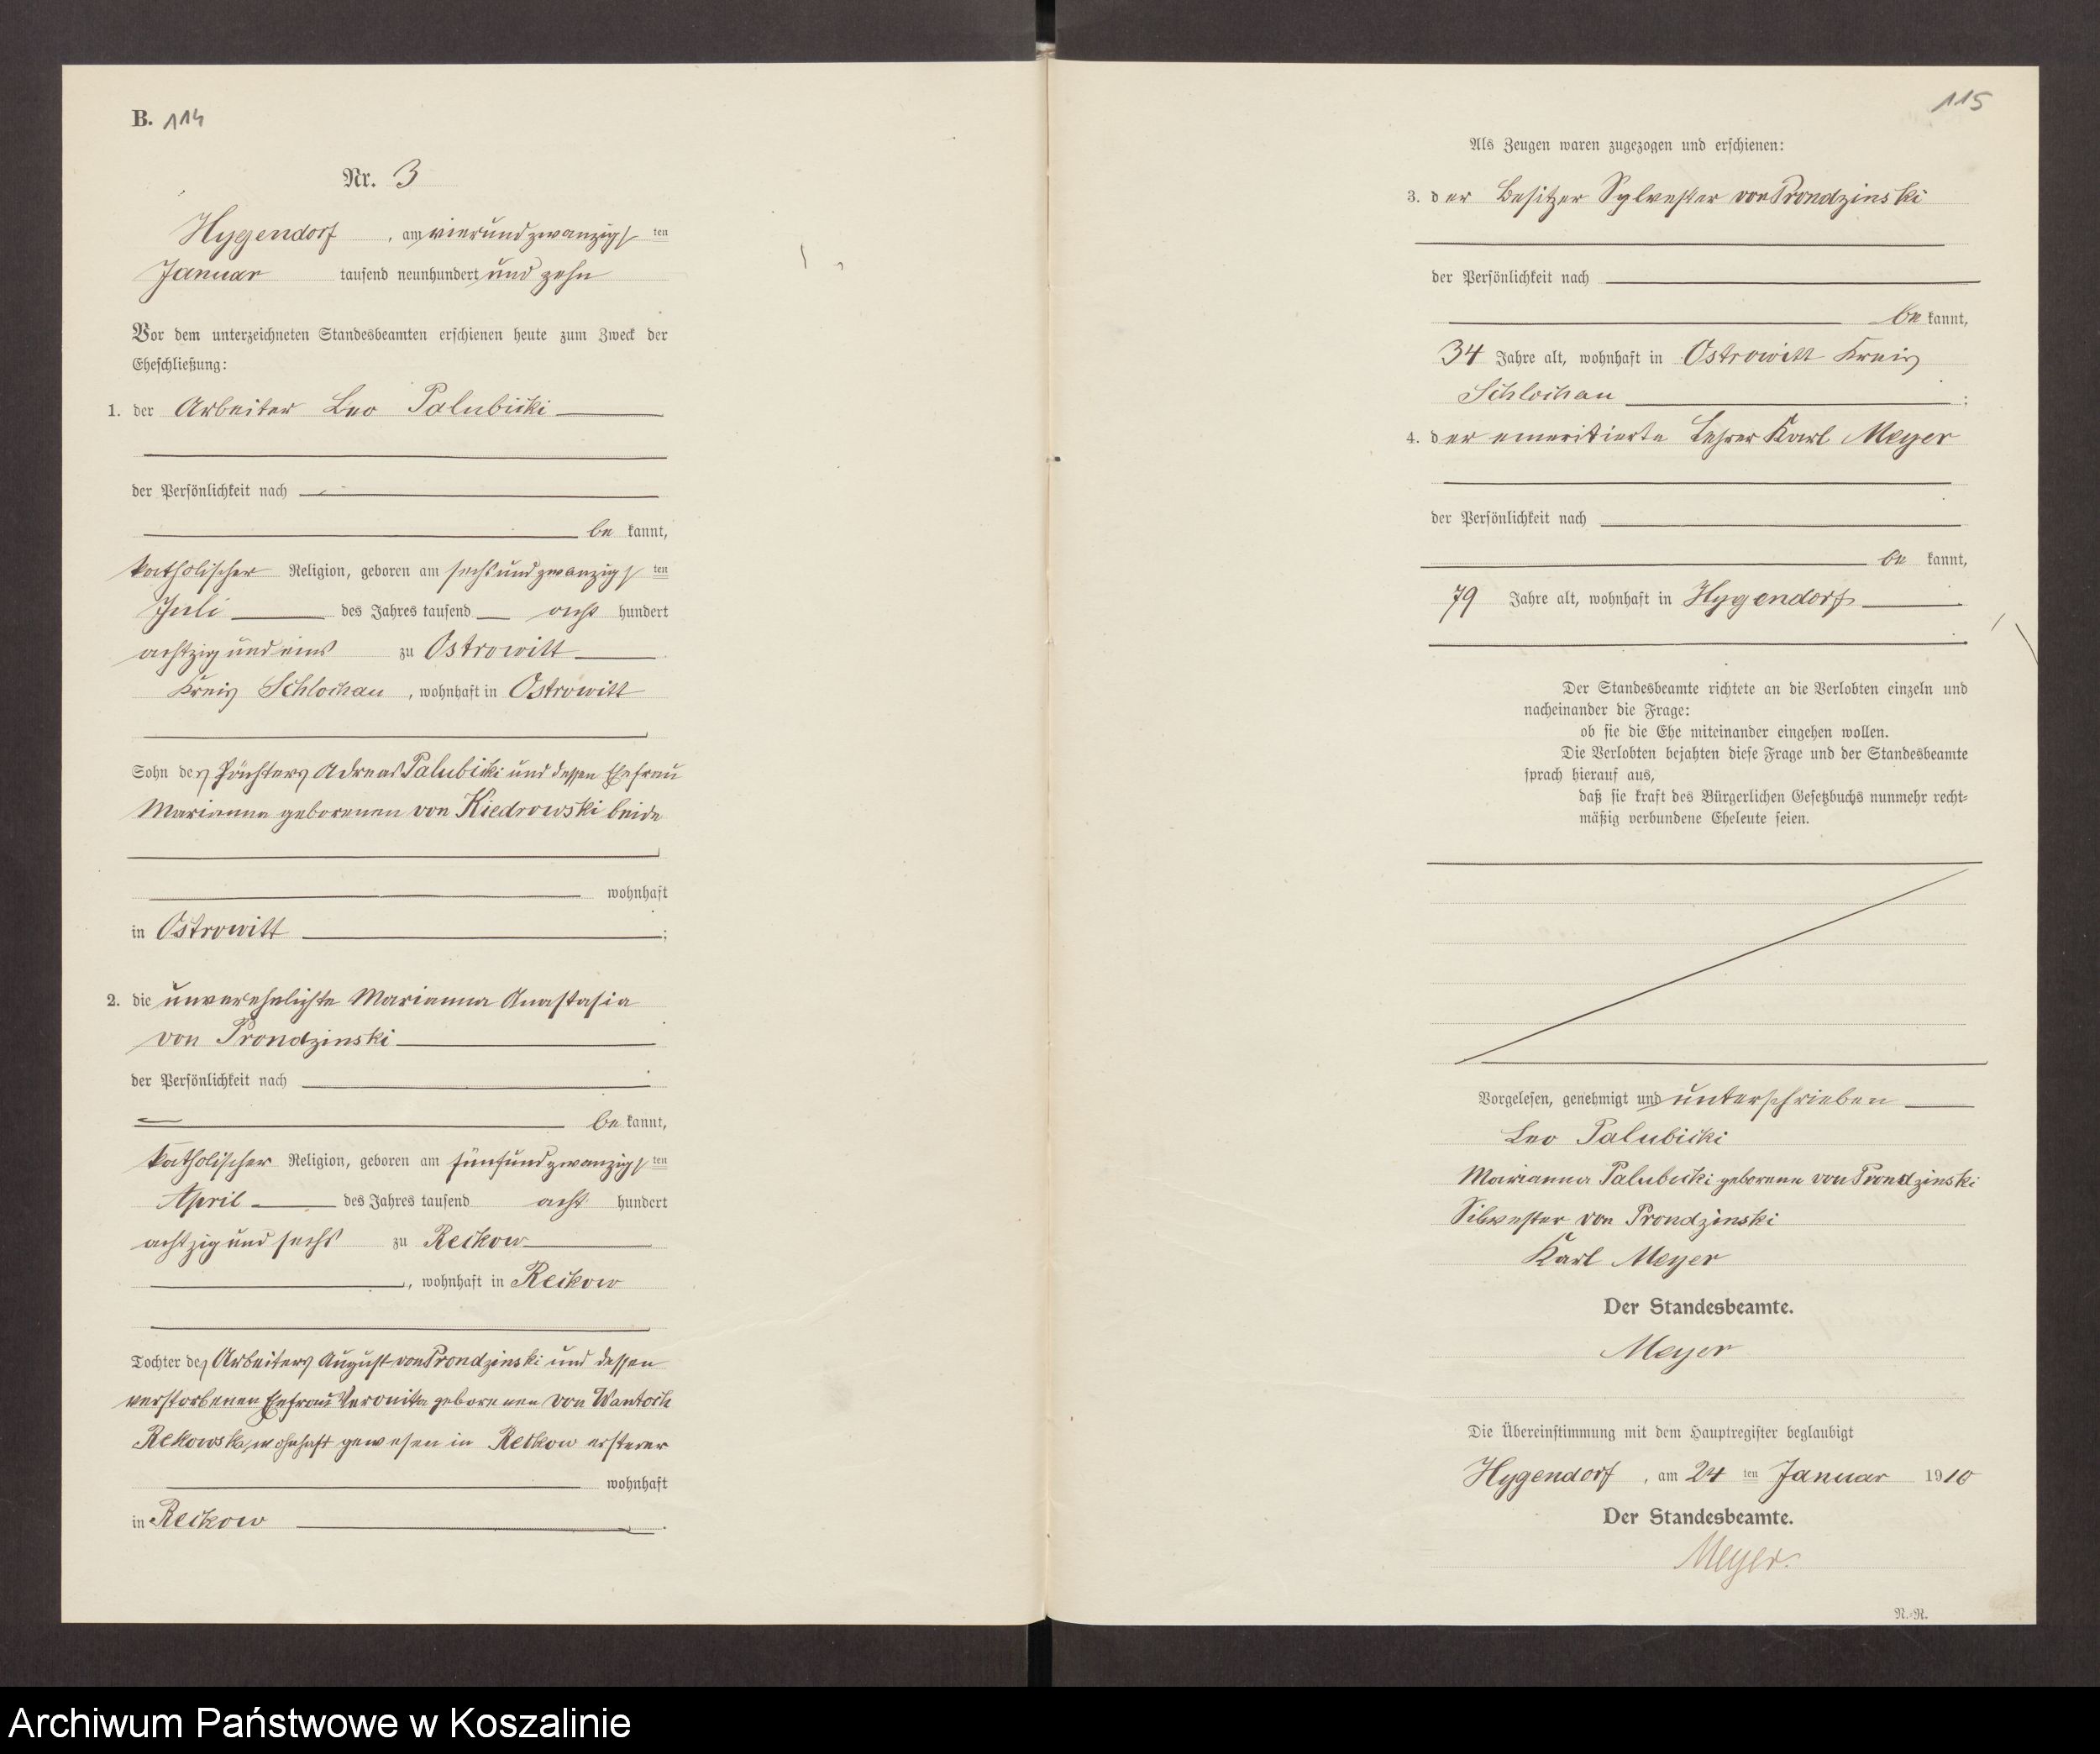 B. 114
Nr. 3
Hygendorf, am vierundzwanzigsten
Januar tausend neunhundert und zehn
Vor dem unterzeichneten Standesbeamten erschienen heute zum Zweck der
Eheschließung:
1. der Arbeiter Leo Palubicki
der Persönlichkeit nach
be kannt,
katholischer Religion, geboren am sechsundzwanzigsten
Juli des Jahres tausend acht hundert
achtzig und eins zu Ostrowitt
Kreis Schlochau, wohnhaft in Ostrowitt
Sohn des Pächters Adreas Palubicki und dessen Ehefrau
Marianna geborenen von Kiedrowski beide
wohnhaft
in Ostrowitt;
2. die unverehelichte Marianna Anastasia
von Prondzinski
der Persönlichkeit nach
be kannt,
katholischer Religion, geboren am fünfundzwanzigsten
April des Jahres tausend acht hundert
achtzig und sechs zu Reckow
, wohnhaft in Reckow
Tochter des Arbeiters August von Prondzinski und dessen
verstorbenen Ehefrau Veronika geborenen von Wantoch
Rekowska, wohnhaft gewesen in Reckow ersterer
wohnhaft
in Reckow.
115
Als Zeugen waren zugezogen und erschienen:
3. der Besitzer Sylvester von Prondzinski
der Persönlichkeit nach
be kannt,
34 Jahre alt, wohnhaft in Ostrowitt Kreis
Schlochau;
4. der emeritierte Lehrer Karl Meyer
der Persönlichkeit nach
be kannt,
79 Jahre alt, wohnhaft in Hygendorf
Der Standesbeamte richtete an die Verlobten einzeln und
nacheinander die Frage:
ob sie die Ehe miteinander eingehen wollen.
Die Verlobten bejahten diese Frage und der Standesbeamte
sprach hierauf aus,
daß sie kraft des Bürgerlichen Gesetzbuchs nunmehr recht-
mäßig verbundene Eheleute seien.
Vorgelesen, genehmigt und unterschrieben
Leo Palubicki
Marianna Palubicki geborene von Prondzinski
Silvester von Prondzinski
Karl Meyer
Der Standesbeamte.
Meyer
Die Übereinstimmung mit dem Hauptregister beglaubigt
Hygendorf, am 24 ten Januar 1910
Der Standesbeamte.
Meyer.
N.-R.
Archiwum Państwowe w Koszalinie